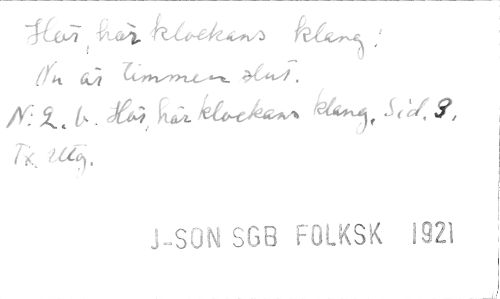 Hör, hör klockans klang!
Nu är timmen slut.
N: 2. b. Hör, hör klockans klang. Sid. 3.
Tx. Utg.
J-SON SGB FOLKSK 1921